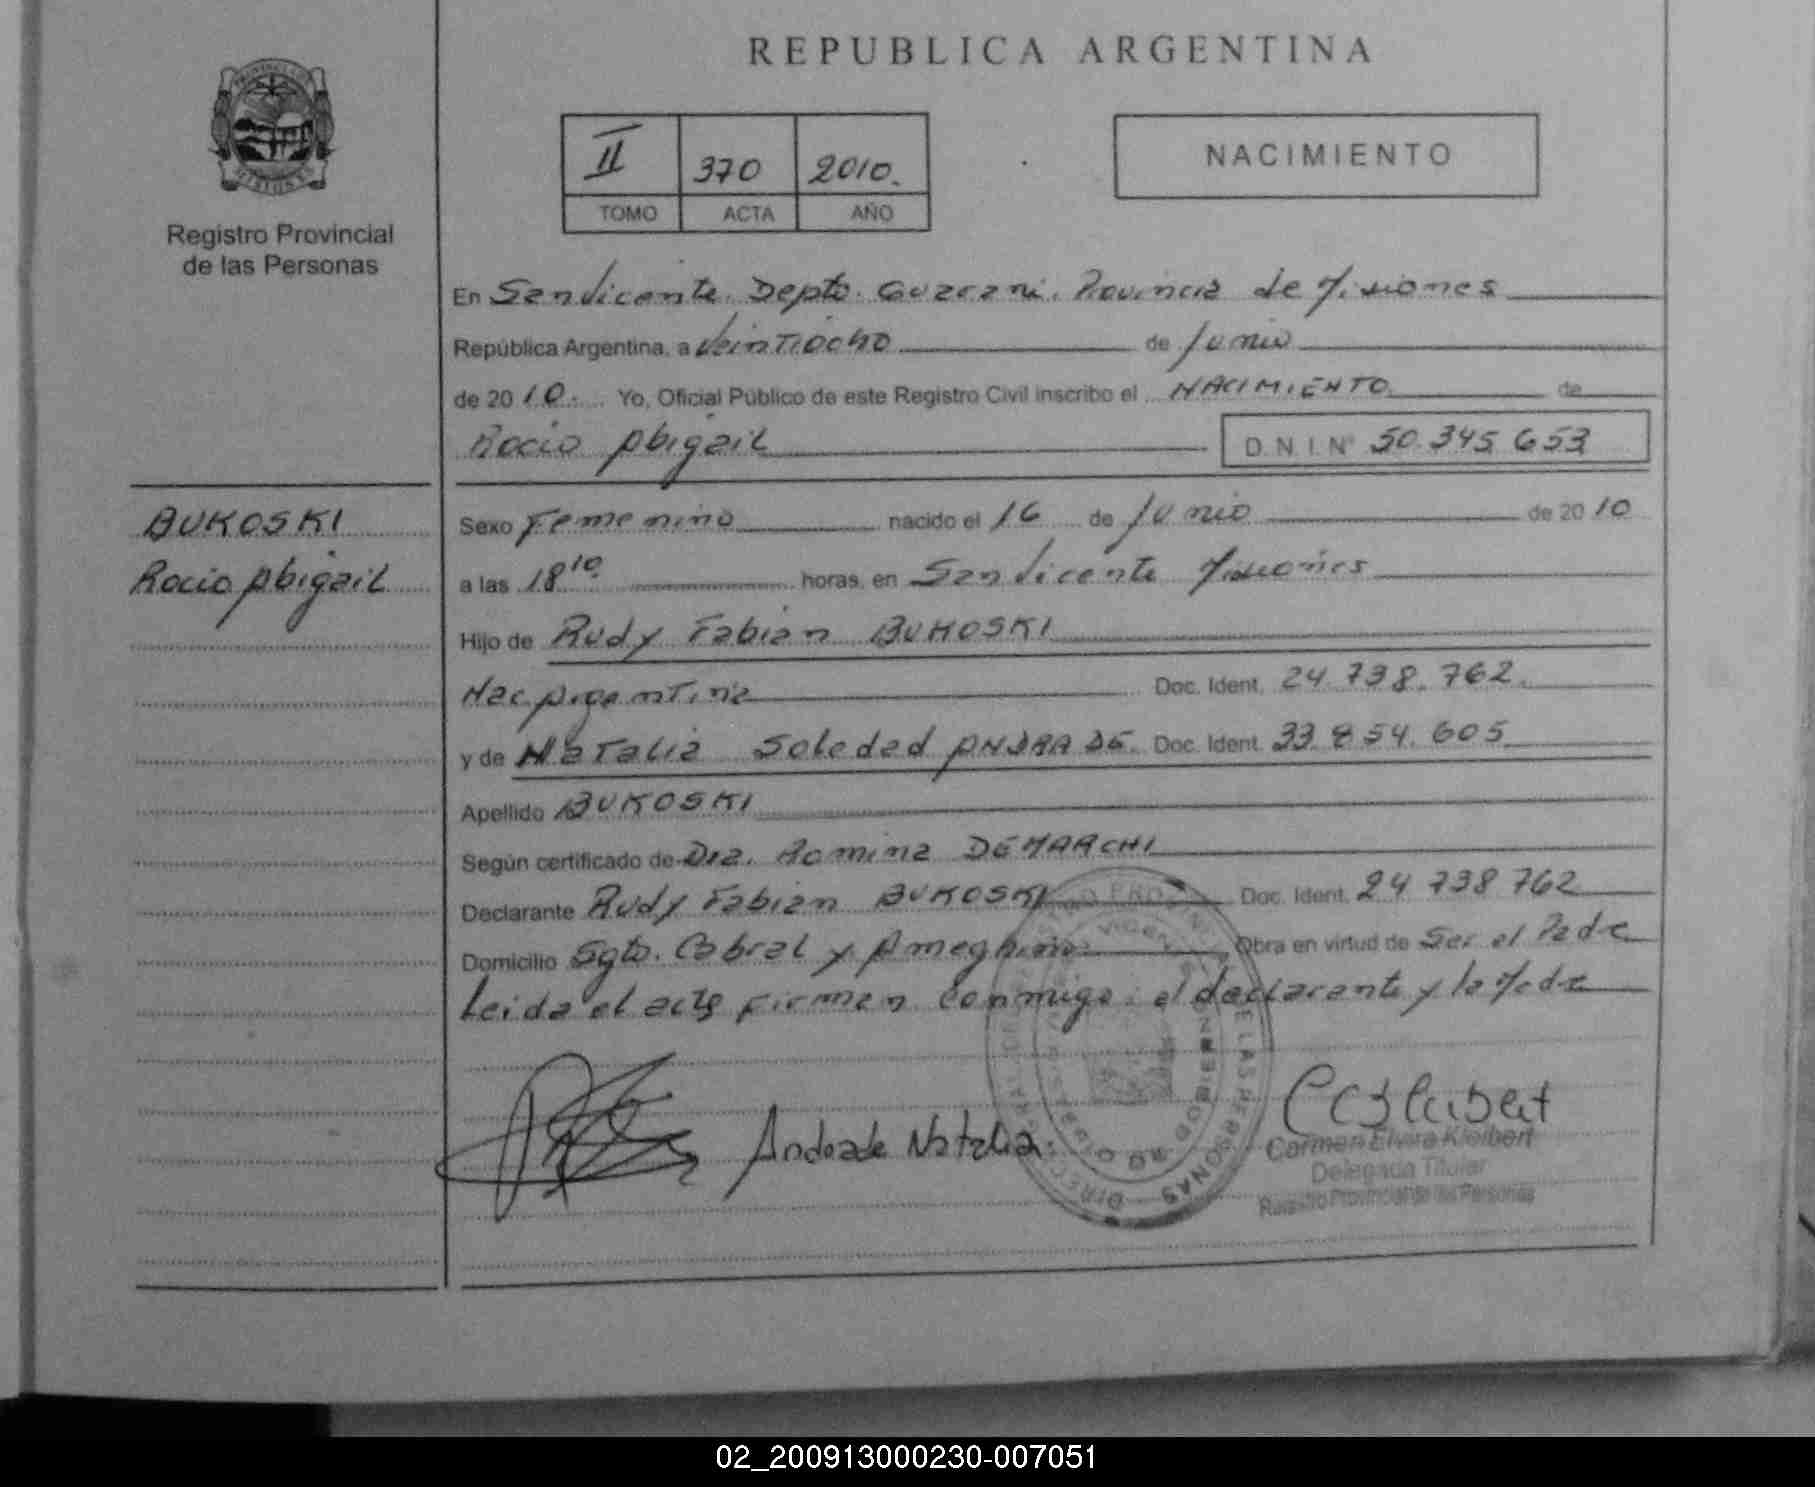 REPUBLICA ARGENTINA
PROVINCIA DE MISIONES
Registro Provincial
de las Personas
II 370 2010.
TOMO ACTA AÑO
NACIMIENTO
En San Vicente. Depto. Guarani. Provincia de Misiones
República Argentina, a Veintiocho de Junio
de 2010. Yo, Oficial Público de este Registro Civil inscribo el NACIMIENTO de
Rocio Abigail D.N.I. Nº 50.345.653
BUKOSKI
Rocio Abigail
Sexo Femenino nacido el 16 de Junio de 2010
a las 18 10. horas, en San Vicente Misiones
Hijo de Rudy Fabian BUKOSKI
Nac. Argentina Doc. Ident. 24.738.762.
y de Natalia Soledad ANDRADE. Doc. Ident. 33.854.605
Apellido BUKOSKI
Según certificado de Dra. Romina DEMARCHI
Declarante Rudy Fabian BUKOSKI Doc. Ident. 24 738 762
Domicilio Sgto. Cabral y Ameghino Obra en virtud de Ser el Padre
Leida el acta firman conmigo: el declarante y la Madre
Andrade Natalia.
Carmen Elvira Kleibert
Delegada Titular
Registro Provincial de las Personas
02_200913000230-007051